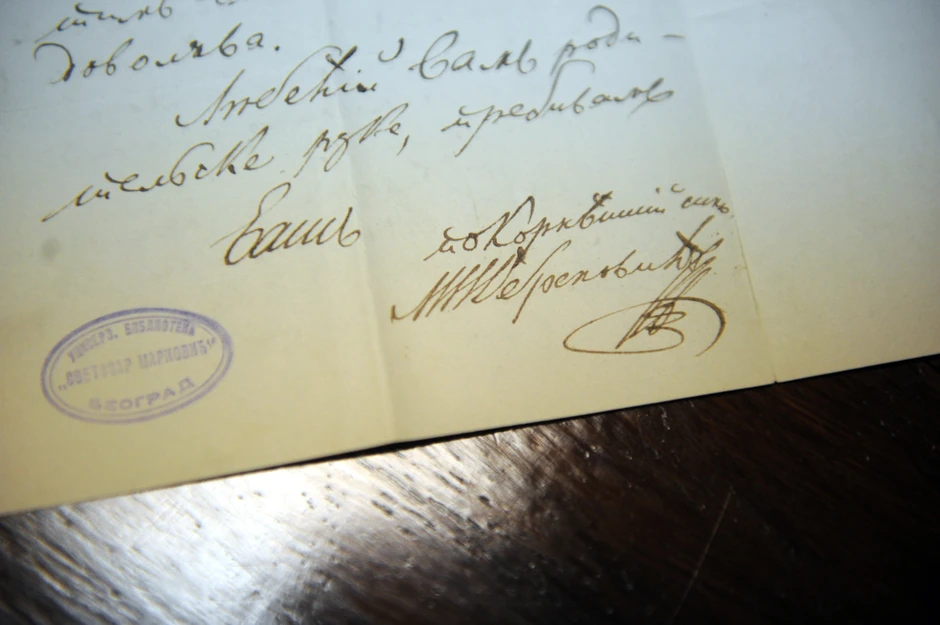 доволѣва.
Любећiй Вамъ роди-
тельске руке, пребивамъ
Вашъ покорнѣйшiй сынъ
М М Обреновићъ
УНИВЕРЗ. БИБЛИОТЕКА
„СВЕТОЗАР МАРКОВИЋ“
БЕОГРАД